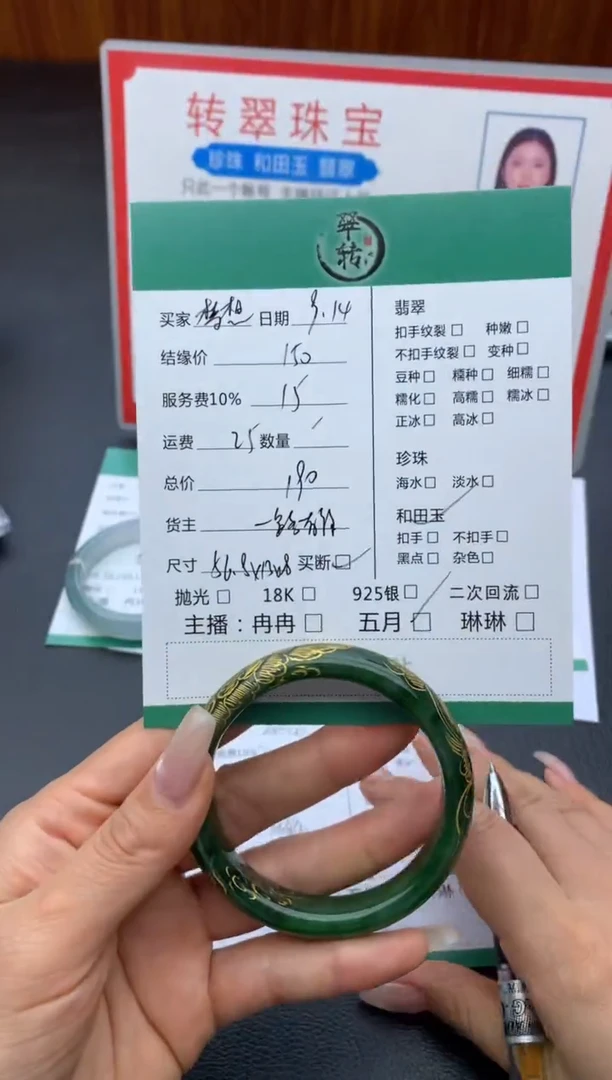 转翠珠宝
珍珠 和田玉 翡翠
只此一个账号
翠
转
买家 梦想 日期 9.14
结缘价 150
服务费10% 15
运费 25 数量
总价 190
货主
尺寸 56.5x13x8 买断□
翡翠
扣手纹裂□ 种嫩□
不扣手纹裂□ 变种□
豆种□ 糯种□ 细糯□
糯化□ 高糯□ 糯冰□
正冰□ 高冰□
珍珠
海水□ 淡水□
和田玉
扣手□ 不扣手□
黑点□ 杂色□
抛光□ 18K□ 925银□ 二次回流□
主播：冉冉□ 五月□ 琳琳□